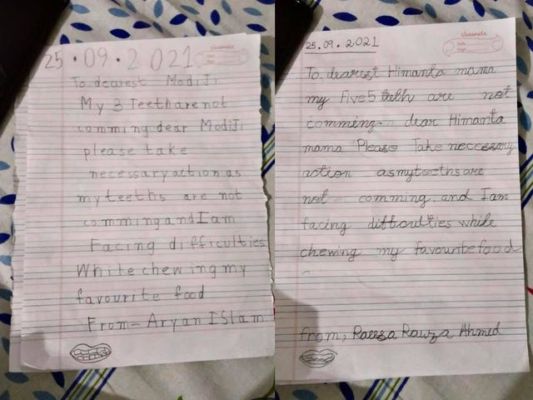 25.09.2021
To dearest ModiJi
My 3 Teeth are not
comming dear ModiJi
please take
necessary action as
my teeths are not
comming and I am
Facing difficulties
While chewing my
favourite food
From - Aryan ISlam
classmate
25.09.2021
To, dearest Himanta mama
my five 5 teeth are not
comming. dear Himanta
mama Please Take neccessary
action as my teeths are
not comming, and I am
facing difficulties while
chewing my favourite food
from, Raeesa Rawza Ahmed